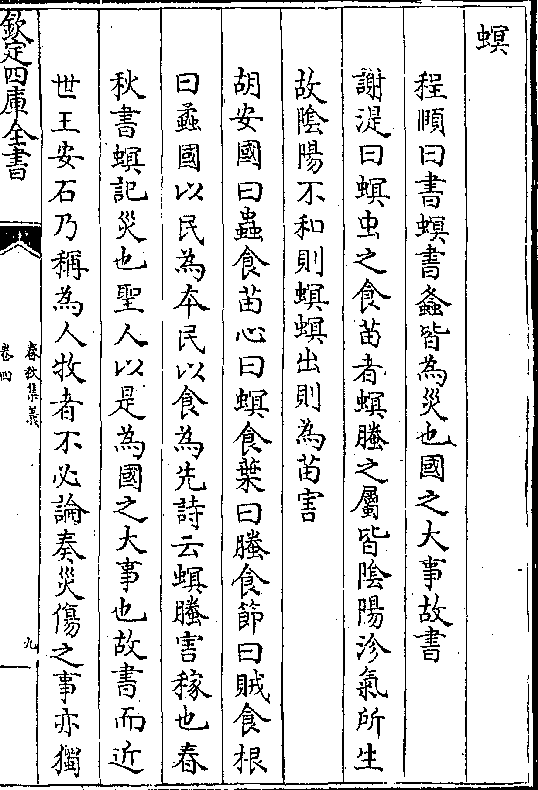 螟
程頤曰書螟書螽皆為災也國之大事故書
謝湜曰螟虫之食苗者螟螣之屬皆陰陽沴氣所生
故陰陽不和則螟螟出則為苗害
胡安國曰蟲食苗心曰螟食葉曰螣食節曰賊食根
曰蟊國以民為本民以食為先詩云螟螣害稼也春
秋書螟記災也聖人以是為國之大事也故書而近
世王安石乃稱為人牧者不必論奏災傷之事亦獨
欽定四庫全書
春秋集義
卷四
九